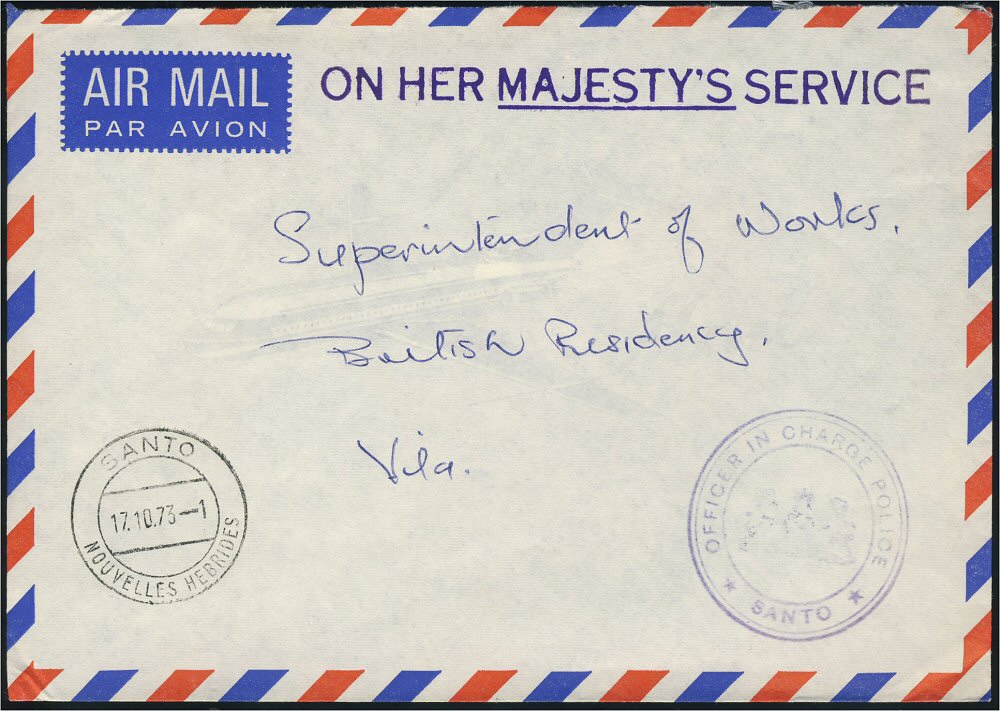 AIR MAIL
PAR AVION
ON HER MAJESTY'S SERVICE
Superintendent of Works,
British Residency,
Vila.
SANTO
17.10.73—1
NOUVELLES HEBRIDES
OFFICER IN CHARGE POLICE
★ SANTO ★